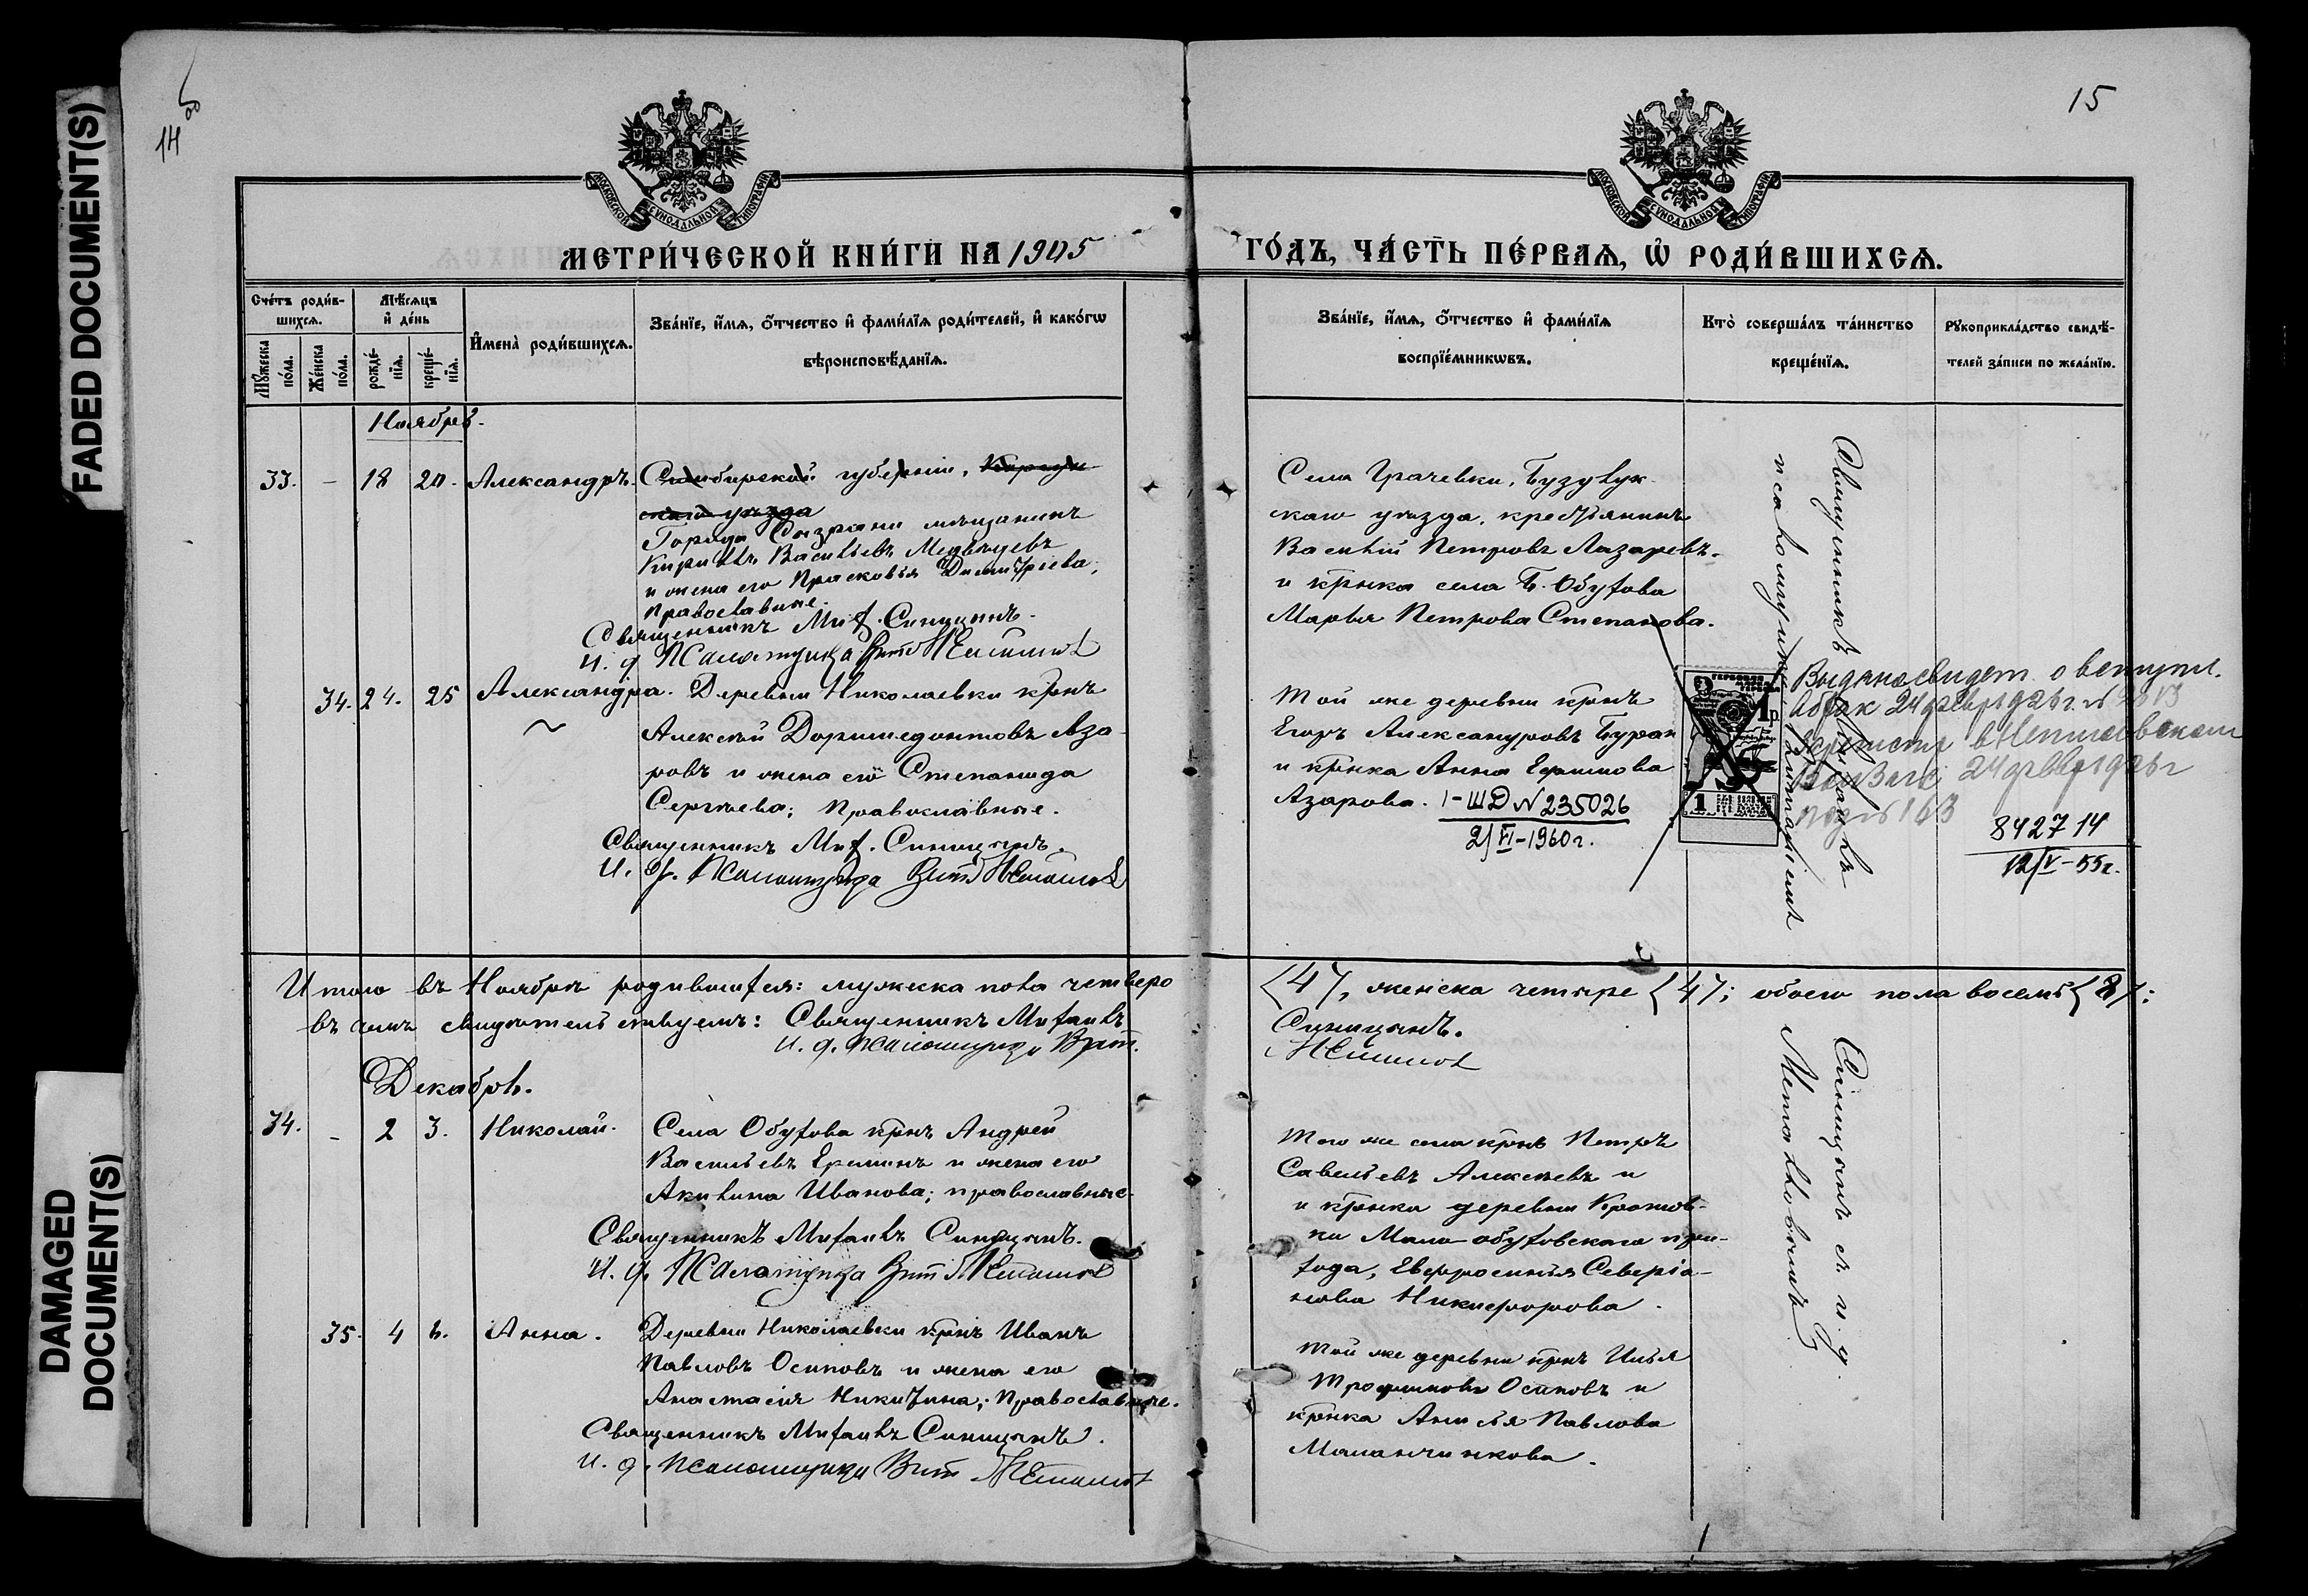 FADED DOCUMENT(S)
DAMAGED
DOCUMENT(S)
14 об
15
МОСКОВСКОЙ СѴНОДАЛЬНОЙ ТИПОГРАФІИ
МОСКОВСКОЙ СѴНОДАЛЬНОЙ ТИПОГРАФІИ
МЕТРИ́ЧЕСКОЙ КНИ́ГИ НА 1905
ГО́ДЪ, ЧА́СТЬ ПЕ́РВАѦ, Ѡ҆ РОДИ́ВШИХСѦ.
Сче́тъ роди́в-
шихсѧ.
Мꙋ́жеска
по́ла.
Же́нска
по́ла.
Мѣ́сѧцъ
и҆ де́нь
рожде́-
нїѧ.
креще́-
нїѧ.
И҆мена̀ роди́вшихсѧ.
Зва́нїе, и҆́мѧ, ѻ҆́тчество и҆ фами́лїѧ роди́телей, и҆ како́гѡ
вѣроисповѣ́данїѧ.
Зва́нїе, и҆́мѧ, ѻ҆́тчество и҆ фами́лїѧ
воспрїе́мникѡвъ.
Кто̀ соверша́лъ та́инство
креще́нїѧ.
Рꙋкоприкла́дство свидѣ́-
телей за́писи по жела́нїю.
Ноябрь.
33. - 18 20. Александръ. Симбирской губерніи,
скаго уѣзда
Города Сызрани мѣщанинъ
Кириллъ Васильевъ Медвѣдевъ
и жена его Прасковья Димитріева,
православные.
Священникъ Мих. Синицынъ.
И. д. Псаломщика Вит.
Села Грачевки, Бузулук-
скаго уѣзда, крестьянинъ
Василій Петровъ Лазаревъ.
и крнка села Б. Обухова
Марья Петрова Степанова.
34. 24. 25 Александра. Деревни Николаевки крнъ
Алексѣй Доримедонтовъ Аза-
ровъ и жена его Степанида
Сергѣева; православные.
Священникъ Мих. Синицынъ.
И. д. Псаломщика Вит.
Той же деревни крнъ
Егоръ Александровъ Буран
и крнка Анна Ермилова
Азарова. 1-ШД N 235026
2/VI-1960 г.
Священникъ Михаилъ
псаломщикъ Виталіемъ
1 р.
1
Выдано свидет. о вступл.
в брак 24 февр 1926 г. №
24 февр 1926 г
под № 163
842714
12/V-55 г.
Итого въ Ноябрѣ родившихся: мужеска пола четверо
<4>, женска четыре <4>; обоего пола восемь <8>:
въ чемъ свидѣтельствуемъ: Священникъ Михаилъ
Синицынъ.
И. д. псаломщика Вит.
Декабрь.
34. - 2 3. Николай. Села Обухова крнъ Андрей
Васильевъ Ереминъ и жена его
Акилина Иванова; православные.
Священникъ Михаилъ Синицынъ.
И. д. Псаломщика Вит.
Того же села крнъ Петръ
Савельевъ Алексѣевъ и
и крнка деревни Кротов-
ки Мало-обуховскаго при-
хода, Евфросинія Северіа-
нова Никифорова.
Синицынъ съ и. д.
35. 4 6. Анна. Деревни Николаевки крнъ Иванъ
Павловъ Осиповъ и жена его
Анастасія Никитина; православные.
Священникъ Михаилъ Синицынъ.
И. д. псаломщика Вит.
Той же деревни крнъ Илья
Трофимовъ Осиповъ и
крнка Анисья Павлова
Маланчикова.